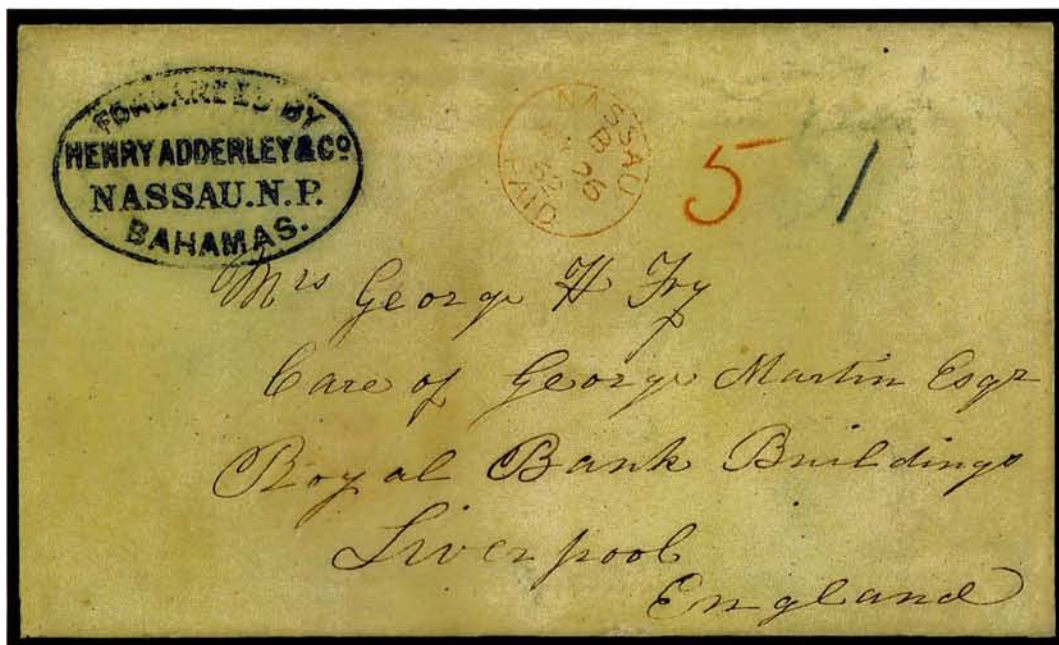 FORWARDED BY
HENRY ADDERLEY & Cº
NASSAU. N. P.
BAHAMAS.
NASSAU
B
26
PAID
5 1
Mrs George H Fry
Care of George Martin Esqr
Royal Bank Buildings
Liverpool
England